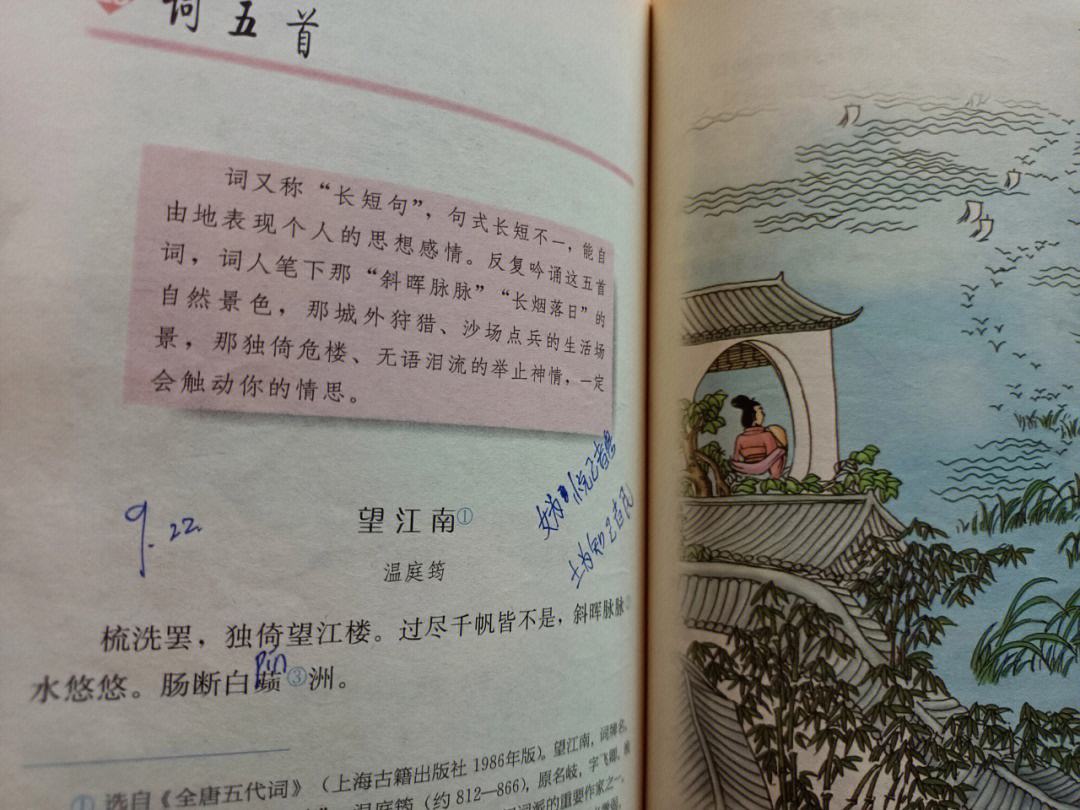 词五首
词又称“长短句”，句式长短不一，能自
由地表现个人的思想感情。反复吟诵这五首
词，词人笔下那“斜晖脉脉”“长烟落日”的
自然景色，那城外狩猎、沙场点兵的生活场
景，那独倚危楼、无语泪流的举止神情，一定
会触动你的情思。
9.22.
望江南①
女为悦己者
士为知己者死
温庭筠
梳洗罢，独倚望江楼。过尽千帆皆不是，斜晖脉脉②
pín
水悠悠。肠断白蘋③洲。
①选自《全唐五代词》（上海古籍出版社1986年版）。望江南，词牌名。
温庭筠（约812—866），原名岐，字飞卿，
词派的重要作家之一，